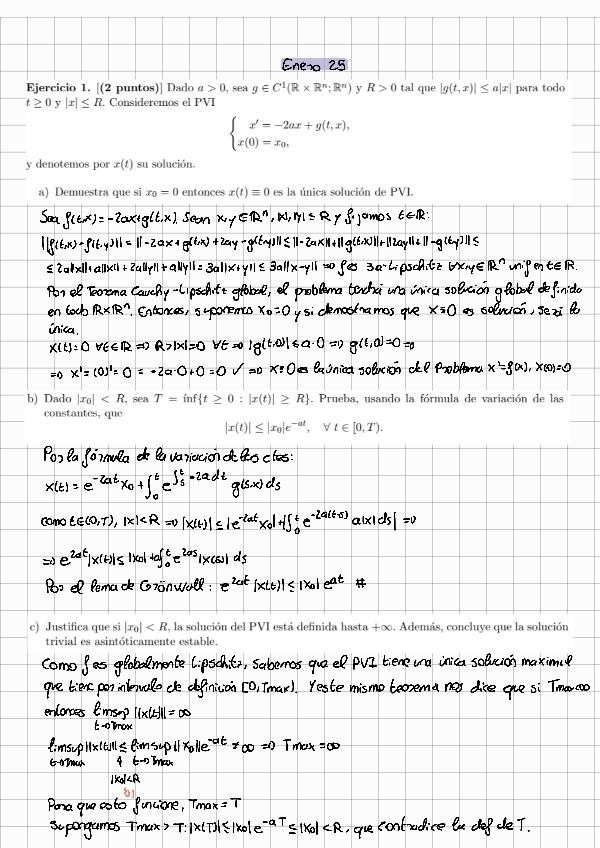 Enero 25
Ejercicio 1. [(2 puntos)] Dado a > 0, sea g ∈ C¹(ℝ × ℝⁿ; ℝⁿ) y R > 0 tal que |g(t, x)| ≤ a|x| para todo
t ≥ 0 y |x| ≤ R. Consideremos el PVI
x′ = −2ax + g(t, x),
x(0) = x₀,
y denotemos por x(t) su solución.
a) Demuestra que si x₀ = 0 entonces x(t) ≡ 0 es la única solución de PVI.
Sea f(t,x) = -2ax+g(t,x). Sean x,y ∈ ℝⁿ, |x|,|y| ≤ R y fijamos t∈ℝ:
||f(t,x) - f(t,y)|| = ||-2ax + g(t,x) + 2ay - g(t,y)|| ≤ ||-2ax|| + ||g(t,x)|| + ||2ay|| + ||-g(t,y)|| ≤
≤ 2a||x|| + a||x|| + 2a||y|| + a||y|| = 3a||x+y|| ≤ 3a||x-y|| ⇒ f es 3a-Lipschitz ∀x,y∈ℝⁿ unif en t∈ℝ.
Por el Teorema Cauchy-Lipschitz global, el problema tendrá una única solución global definida
en todo ℝ×ℝⁿ. Entonces, suponemos x₀=0 y si demostramos que x≡0 es solución, será la
única.
x(t)=0 ∀t∈ℝ ⇒ R>|x|=0 ∀t ⇒ |g(t,0)| ≤ a·0 ⇒ g(t,0)=0 ⇒
⇒ x'=(0)'=0 = -2a·0+0=0 ✓ ⇒ x≡0 es la única solución del Problema x'=f(x), x(0)=0
b) Dado |x₀| < R, sea T = ínf{t ≥ 0 : |x(t)| ≥ R}. Prueba, usando la fórmula de variación de las
constantes, que
|x(t)| ≤ |x₀|e⁻ᵃᵗ, ∀ t ∈ [0, T).
Por la fórmula de la variación de las ctes:
x(t) = e^{-2at} x₀ + ∫₀ᵗ e^{∫ₛᵗ -2a dt} g(s,x) ds
como t∈(0,T), |x|<R ⇒ |x(t)| ≤ |e^{-2at} x₀| + |∫₀ᵗ e^{-2a(t-s)} a|x| ds| ⇒
⇒ e^{2at}|x(t)| ≤ |x₀| + a∫₀ᵗ e^{2as}|x(s)| ds
Por el lema de Grönwall: e^{2at} |x(t)| ≤ |x₀| e^{at} #
c) Justifica que si |x₀| < R, la solución del PVI está definida hasta +∞. Además, concluye que la solución
trivial es asintóticamente estable.
Como f es globalmente Lipschitz, sabemos que el PVI tiene una única solución maximal
que tiene por intervalo de definición [0,Tmax). Y este mismo teorema nos dice que si Tmax<∞
entonces limsup ||x(t)|| = ∞
t→Tmax
limsup||x(t)|| ≤ limsup || x₀||e^{-at} ≠ ∞ ⇒ Tmax = ∞
t→Tmax t→Tmax
|x₀|<R
b)
Para que esto funcione, Tmax = T
Supongamos Tmax > T: |x(T)| ≤ |x₀| e^{-aT} ≤ |x₀| < R, que contradice la def de T.